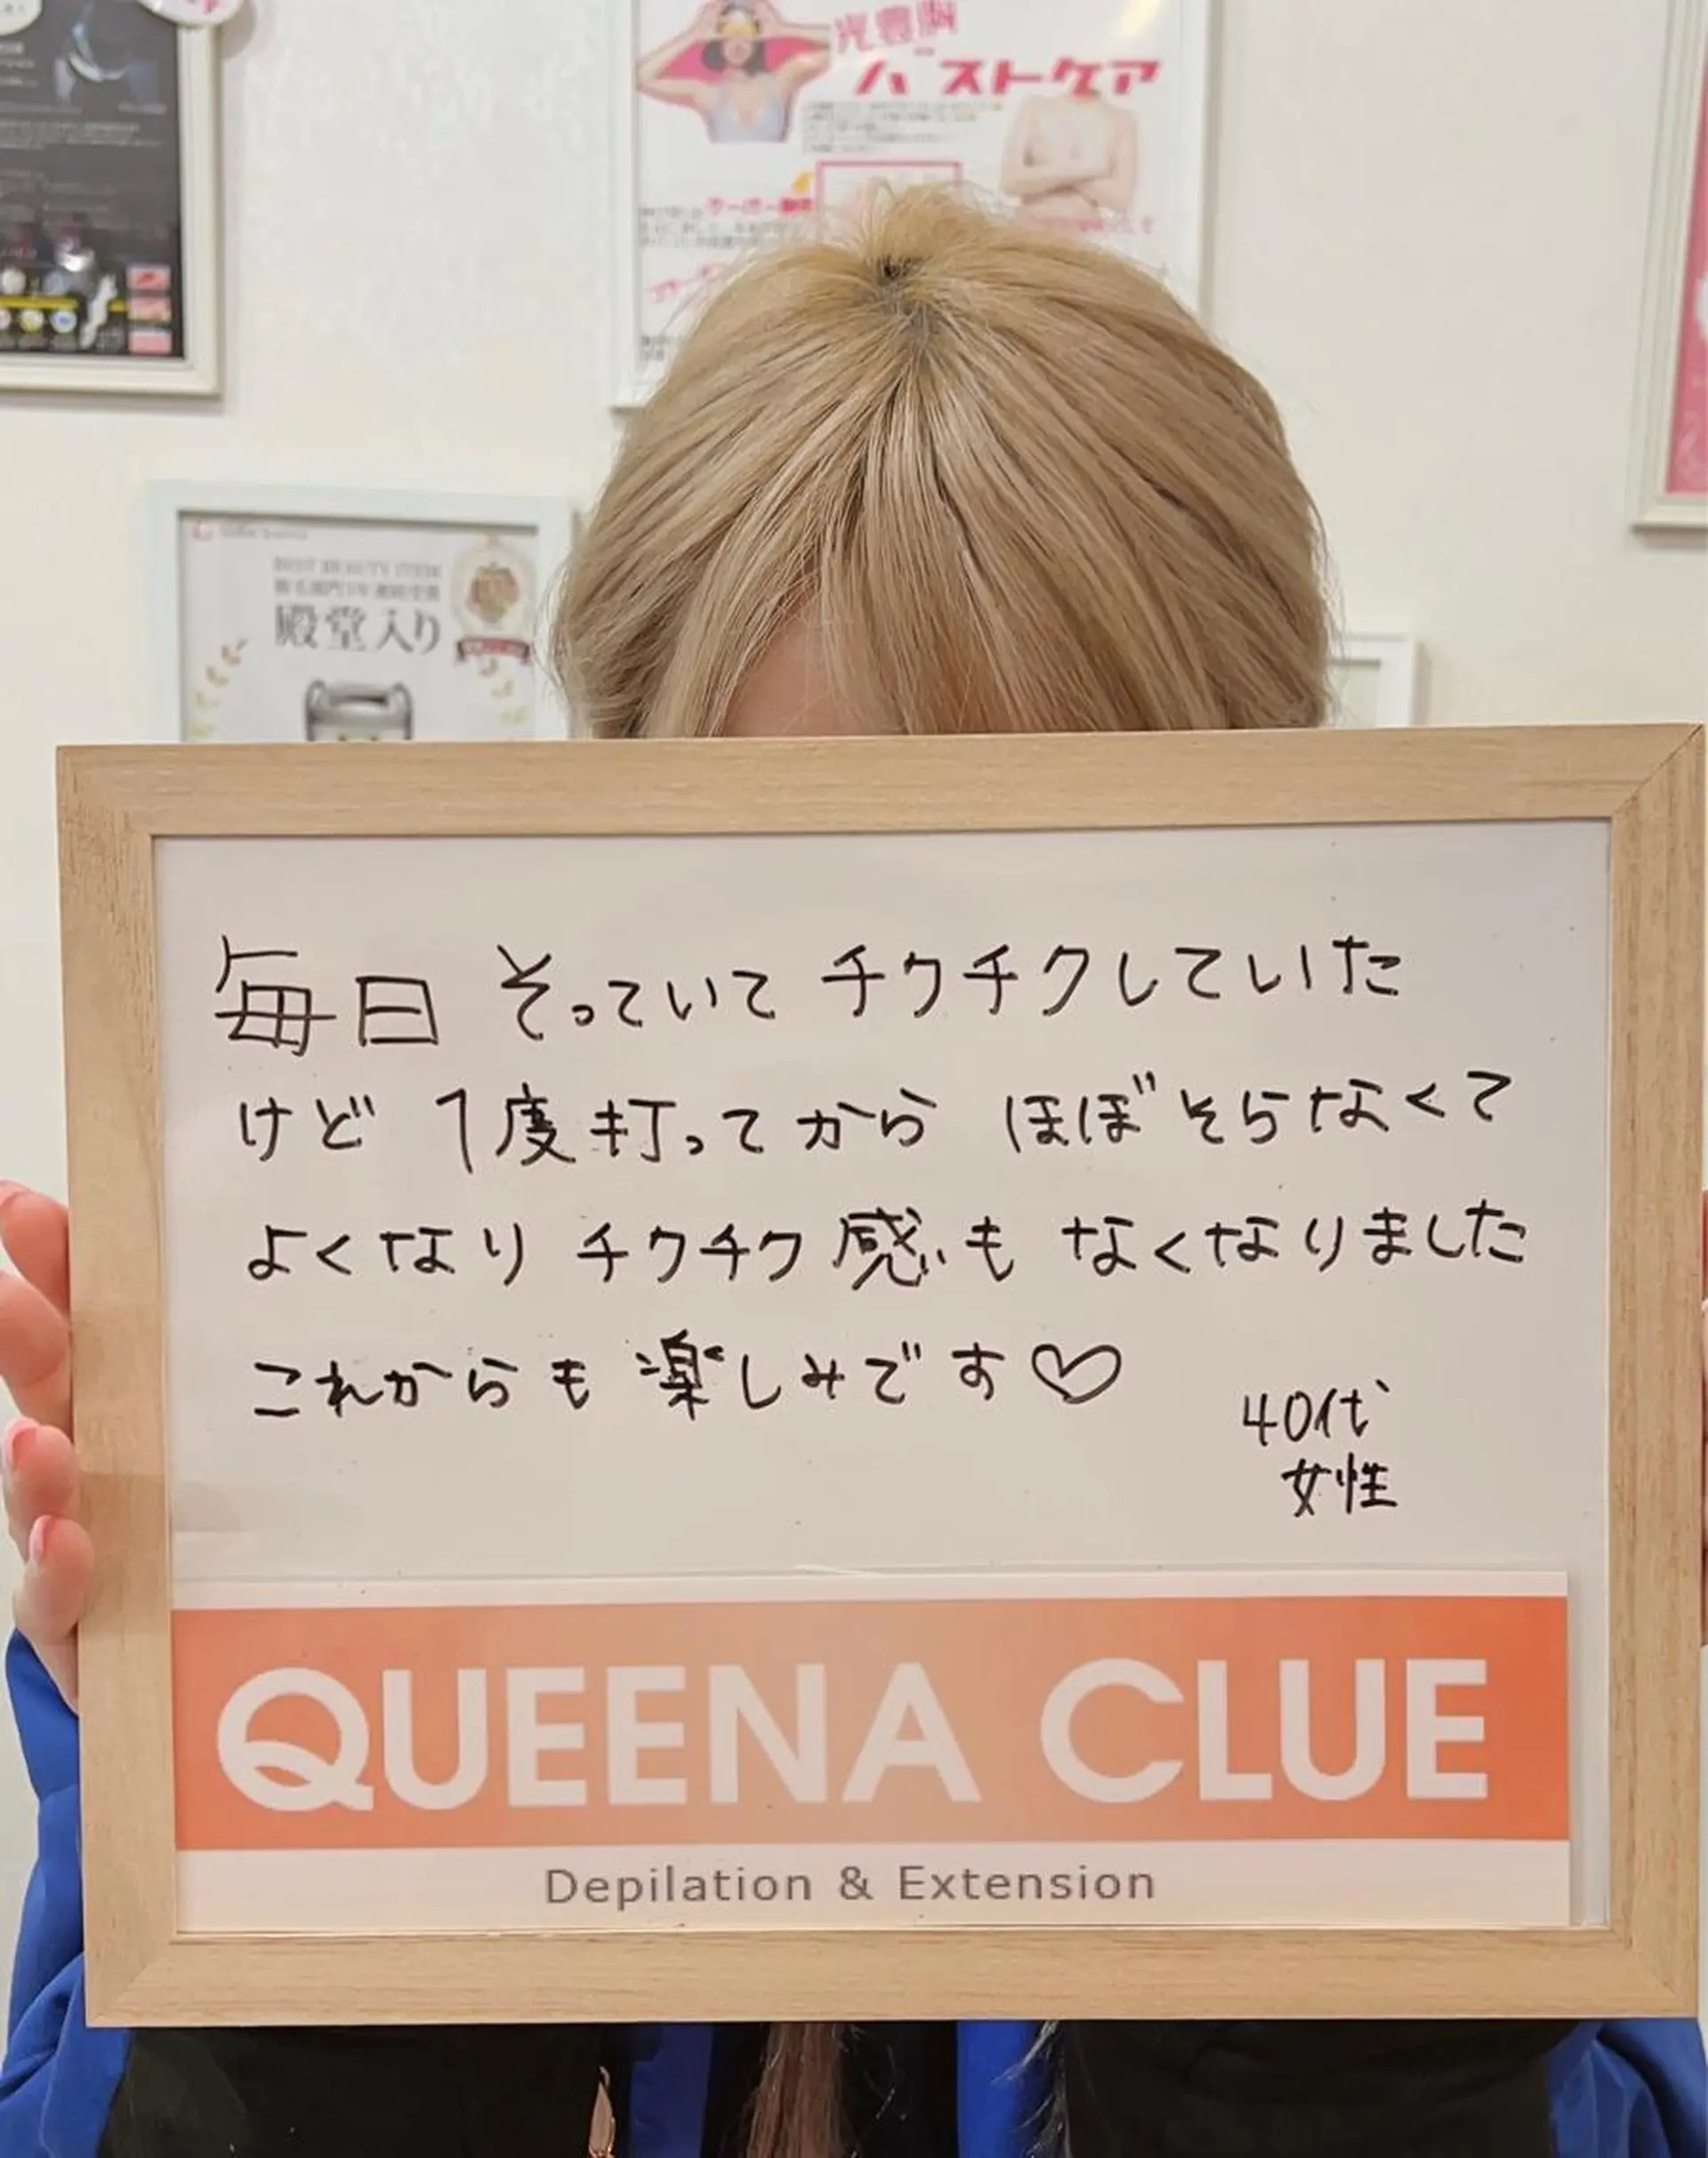 光豊胸
バストケア
BEST BEAUTY ITEM
殿堂入り
毎日 そっていて チクチクしていた
けど 1度打ってから ほぼそらなくて
よくなり チクチク感も なくなりました
これからも 楽しみです♡
40代
女性
QUEENA CLUE
Depilation & Extension